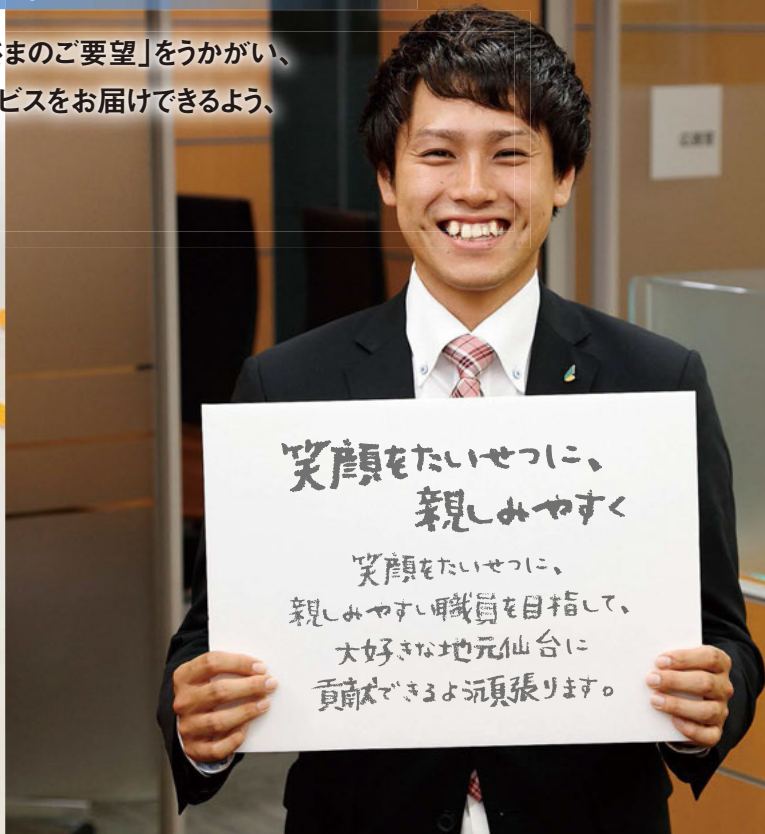 まのご要望」をうかがい、
ビスをお届けできるよう、
笑顔をたいせつに、
親しみやすく
笑顔をたいせつに、
親しみやすい職員を目指して、
大好きな地元仙台に
貢献できるよう頑張ります。